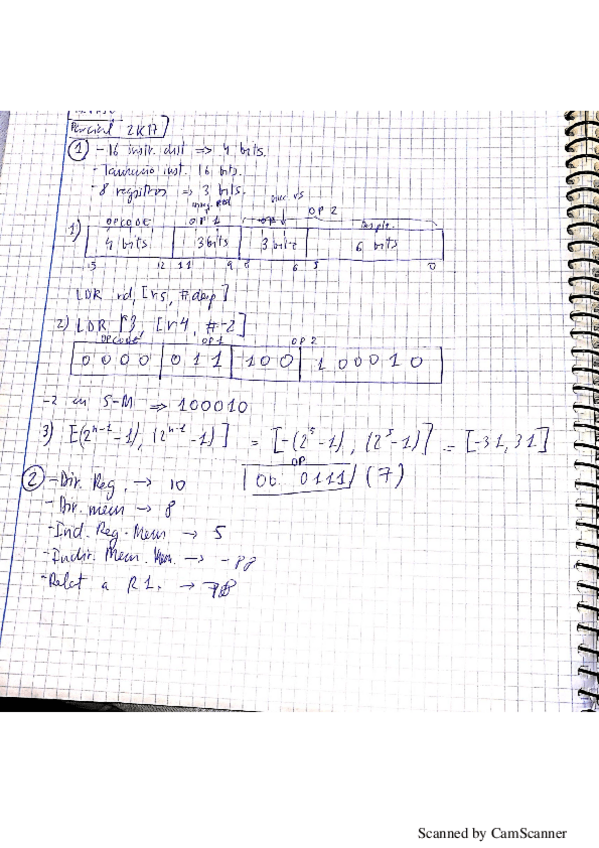 Parcial 2K17
① - 16 instr. dist => 4 bits.
- Tamano inst. 16 bits.
- 8 registros => 3 bits.
OP 2
1) OPCODE OP 1
4 bits 3 bits 3 bits 6 bits
12 11 9 6 5 0
LDR rd, [rs, #desp]
2) LDR r3, [r4, #-2]
OPCODE OP1 OP2
0 0 0 0 0 1 1 1 0 0 1 0 0 0 1 0
-2 en S-M => 100010
3) [(2ⁿ⁻¹-1), (2ⁿ⁻¹-1)] = [-(2⁵-1), (2⁵-1)] = [-31, 31]
OP
② - Dir. Reg. -> 10 00 0111 (7)
- Dir. mem -> 8
- Ind. Reg. Mem -> 5
- Indir. Mem.
- Relat a R1. ->
Scanned by CamScanner